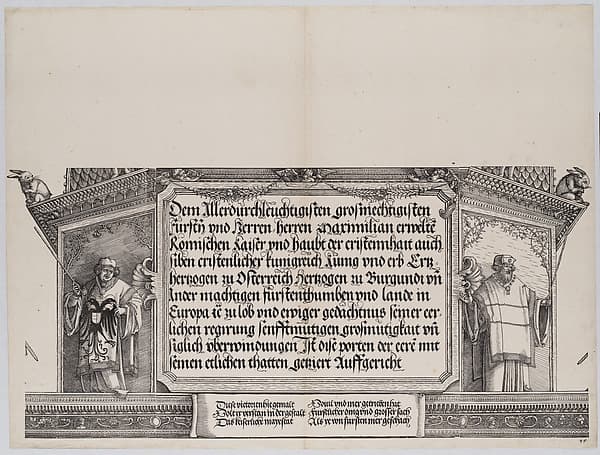 Dem Allerdurchleuchtigisten grosmechtigisten
Fursten vnd Herren herren Maximilian erwelte
Romischen Kaiser vnd haubt der cristennhait auch
siben cristenlicher kunigreich kunig vnd erb Ertz
hertzogen zu Osterreich Hertzogen zu Burgundi vn̄
Ander machtigen furstenthumben vnd lannde in
Europa ꝛc zu lob vnd ewiger gedachtnus seiner eer
lichen regirung senfftmutigen grosmutigkait vn̄
siglich vberwindungen Ist dise porten der eere mit
seinen etlichen thatten getziert Auffgericht
Dise victori hie gemalt
Solt ir versten in der gestalt
Das keiserliche mayestat
vnd mer getriben hat
Furstlicher ding vnd grosser sach
Als ye von fursten mer geschach